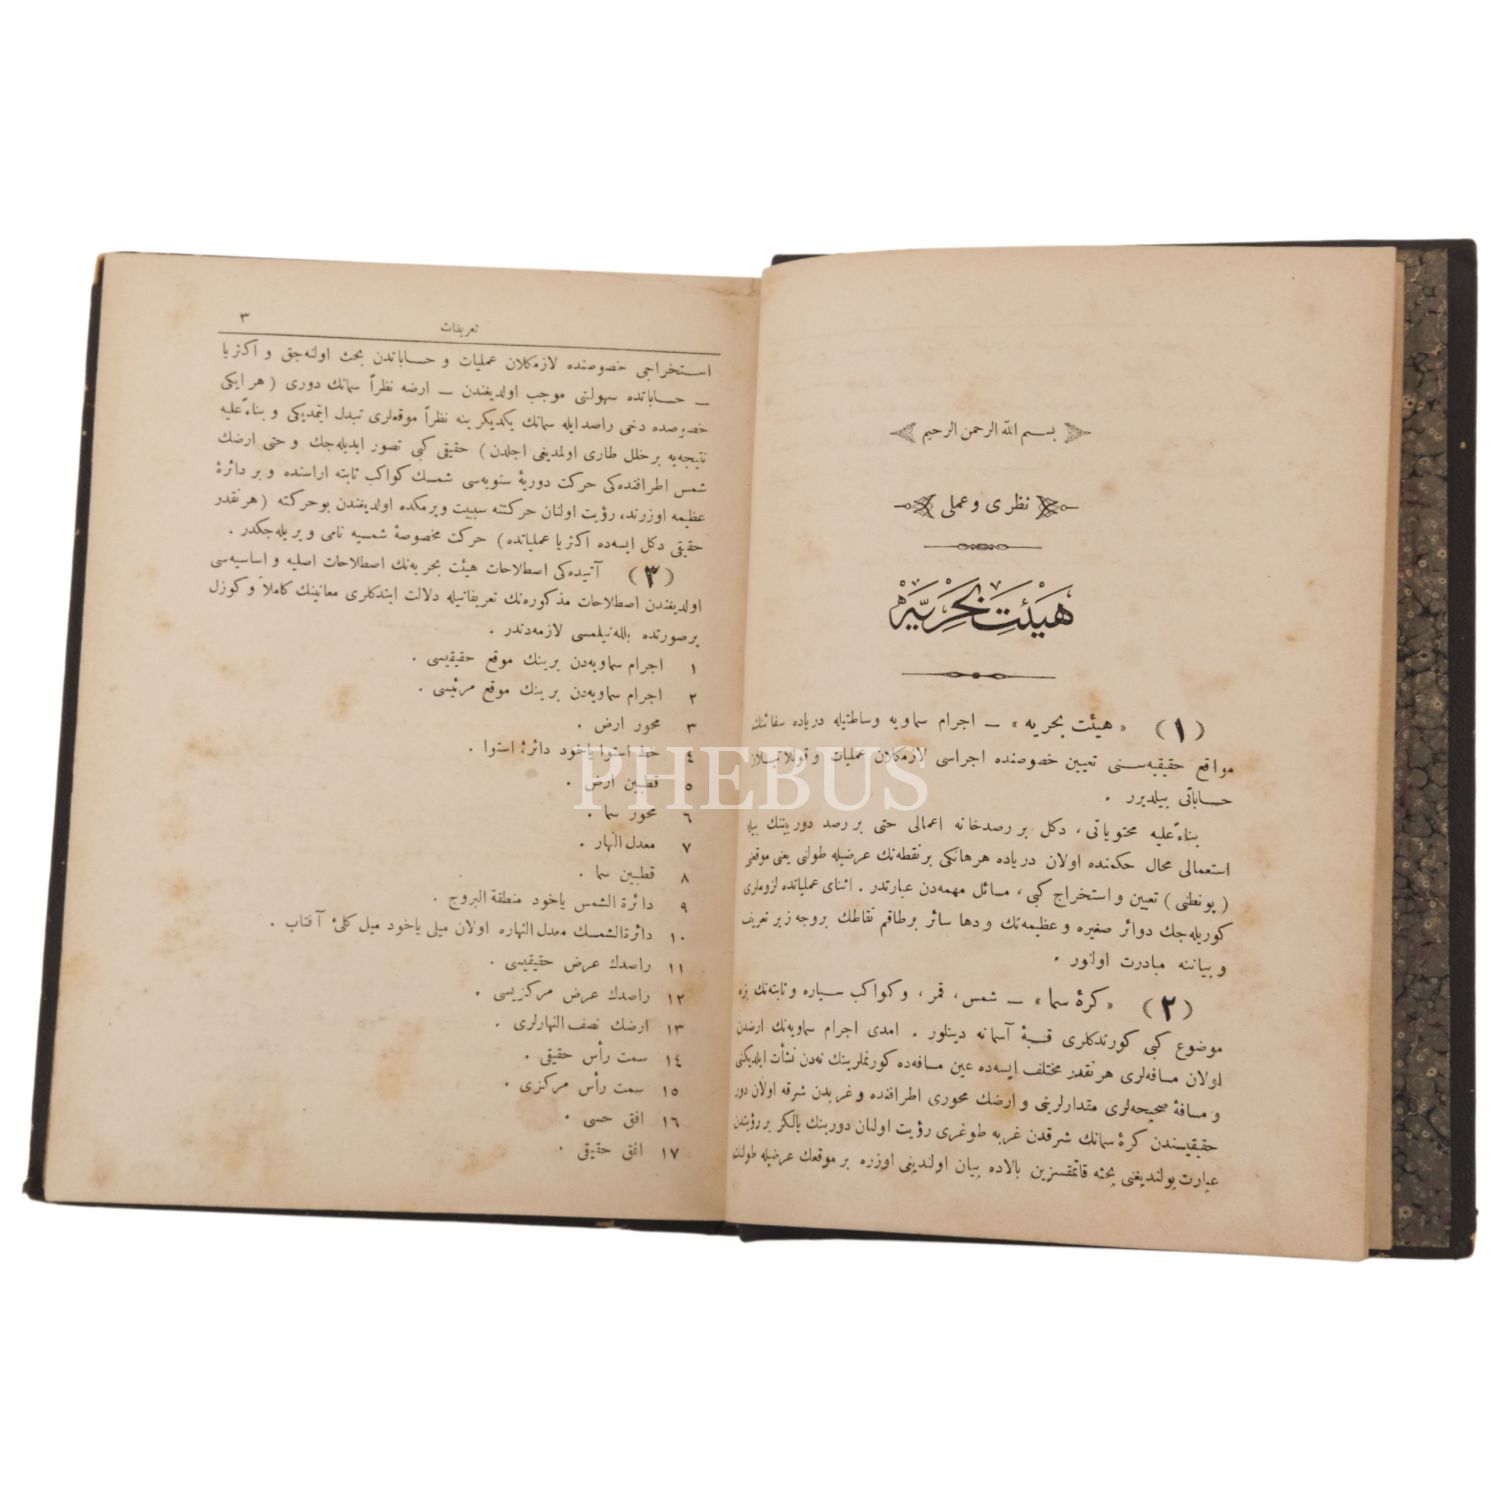 بسم الله الرحمن الرحيم
نظری و عملی
هَيْئَتِ بَحْرِيَّهْ
(١) «هيئت بحريه» — اجرام سماويه وساطتيله درياده سفائنك
مواقع حقيقيه‌سنی تعيين خصوصنده اجراسی لازمكلان عمليات و قوللانيلان
حساباتی بيلديرر .
بناءً عليه محتوياتی ، دكل بر رصدخانه اعمالی حتی بر رصد دوربيننك بيله
استعمالی محال حكمنده اولان درياده هر هانكی بر نقطه‌نك عرضيله طولنی يعنی موقعنی
( پونطنی ) تعيين و استخراج كبی ، مسائل مهمه‌دن عبارتدر . اثنای عملياتده لزوملری
كوريله‌جك دوائر صغيره و عظيمه‌نك و دها سائر بر طاقم نقاطك بروجه زير تعريف
و بياننه مبادرت اولنور .
(٢) «كرهٔ سما» — شمس ، قمر ، و كواكب سياره و ثابته‌نك بزه
موضوع كبی كورندكلری قبهٔ آسمانه دينلور . امدی اجرام سماويه‌نك ارضدن
اولان مسافه‌لری هر نقدر مختلف ايسه‌ده عين مسافه‌ده كورنملرينك نه‌دن نشأت ايلديكنی
و مسافهٔ صحيحه‌لری مقدارلرينی و ارضك محوری اطرافنده و غربدن شرقه اولان دور
حقيقيسندن كرهٔ سمانك شرقدن غربه طوغری رؤيت اولنان دورينك يالكز بر رؤيتدن
عبارت بولنديغنی بحثه قاتمقسزين بالاده بيان اولنديغی اوزره بر موقعك عرضيله طولنك
تعريفات
٣
استخراجی خصوصنده لازمكلان عمليات و حساباتدن بحث اولنه‌جق و اكثريا
— حساباتده سهولتی موجب اولديغندن — ارضه نظراً سمانك دوری ( هر ايكی
خصوصده دخی راصد ايله سمانك يكديكرينه نظراً موقعلری تبدل ايتمديكی و بناءً عليه
نتيجه‌يه بر خلل طاری اولمديغی اجلدن ) حقيقی كبی تصور ايديله‌جك و حتی ارضك
شمس اطرافنده‌كی حركت دوريهٔ سنويه‌سی شمسك كواكب ثابته اراسنده و بر دائرهٔ
عظيمه اوزرنده رؤيت اولنان حركتنه سببيت ويرمكده اولديغندن بو حركته ( هر نقدر
حقيقی دكل ايسه‌ده اكثريا عملياتده ) حركت مخصوصهٔ شمسيه نامی ويريله‌جكدر .
(٣) آتيده‌كی اصطلاحات هيئت بحريه‌نك اصطلاحات اصليه و اساسيه‌سی
اولديغندن اصطلاحات مذكوره‌نك تعريفاتيله دلالت ايتدكلری معانينك كاملاً و كوزل
بر صورتده بللنيلمسی لازمه‌دندر .
١ اجرام سماويه‌دن برينك موقع حقيقيسی .
٢ اجرام سماويه‌دن برينك موقع مرئيسی .
٣ محور ارض .
٤ خط استوا ياخود دائرهٔ استوا .
٥ قطبين ارض .
٦ محور سما .
٧ معدل النهار .
٨ قطبين سما .
٩ دائرة الشمس ياخود منطقة البروج .
١٠ دائرة الشمسك معدل النهاره اولان ميلی ياخود ميل كلئ آفتاب .
١١ راصدك عرض حقيقيسی .
١٢ راصدك عرض مركزيسی .
١٣ ارضك نصف النهارلری .
١٤ سمت رأس حقيقی .
١٥ سمت رأس مركزی .
١٦ افق حسی .
١٧ افق حقيقی .
PHEBUS